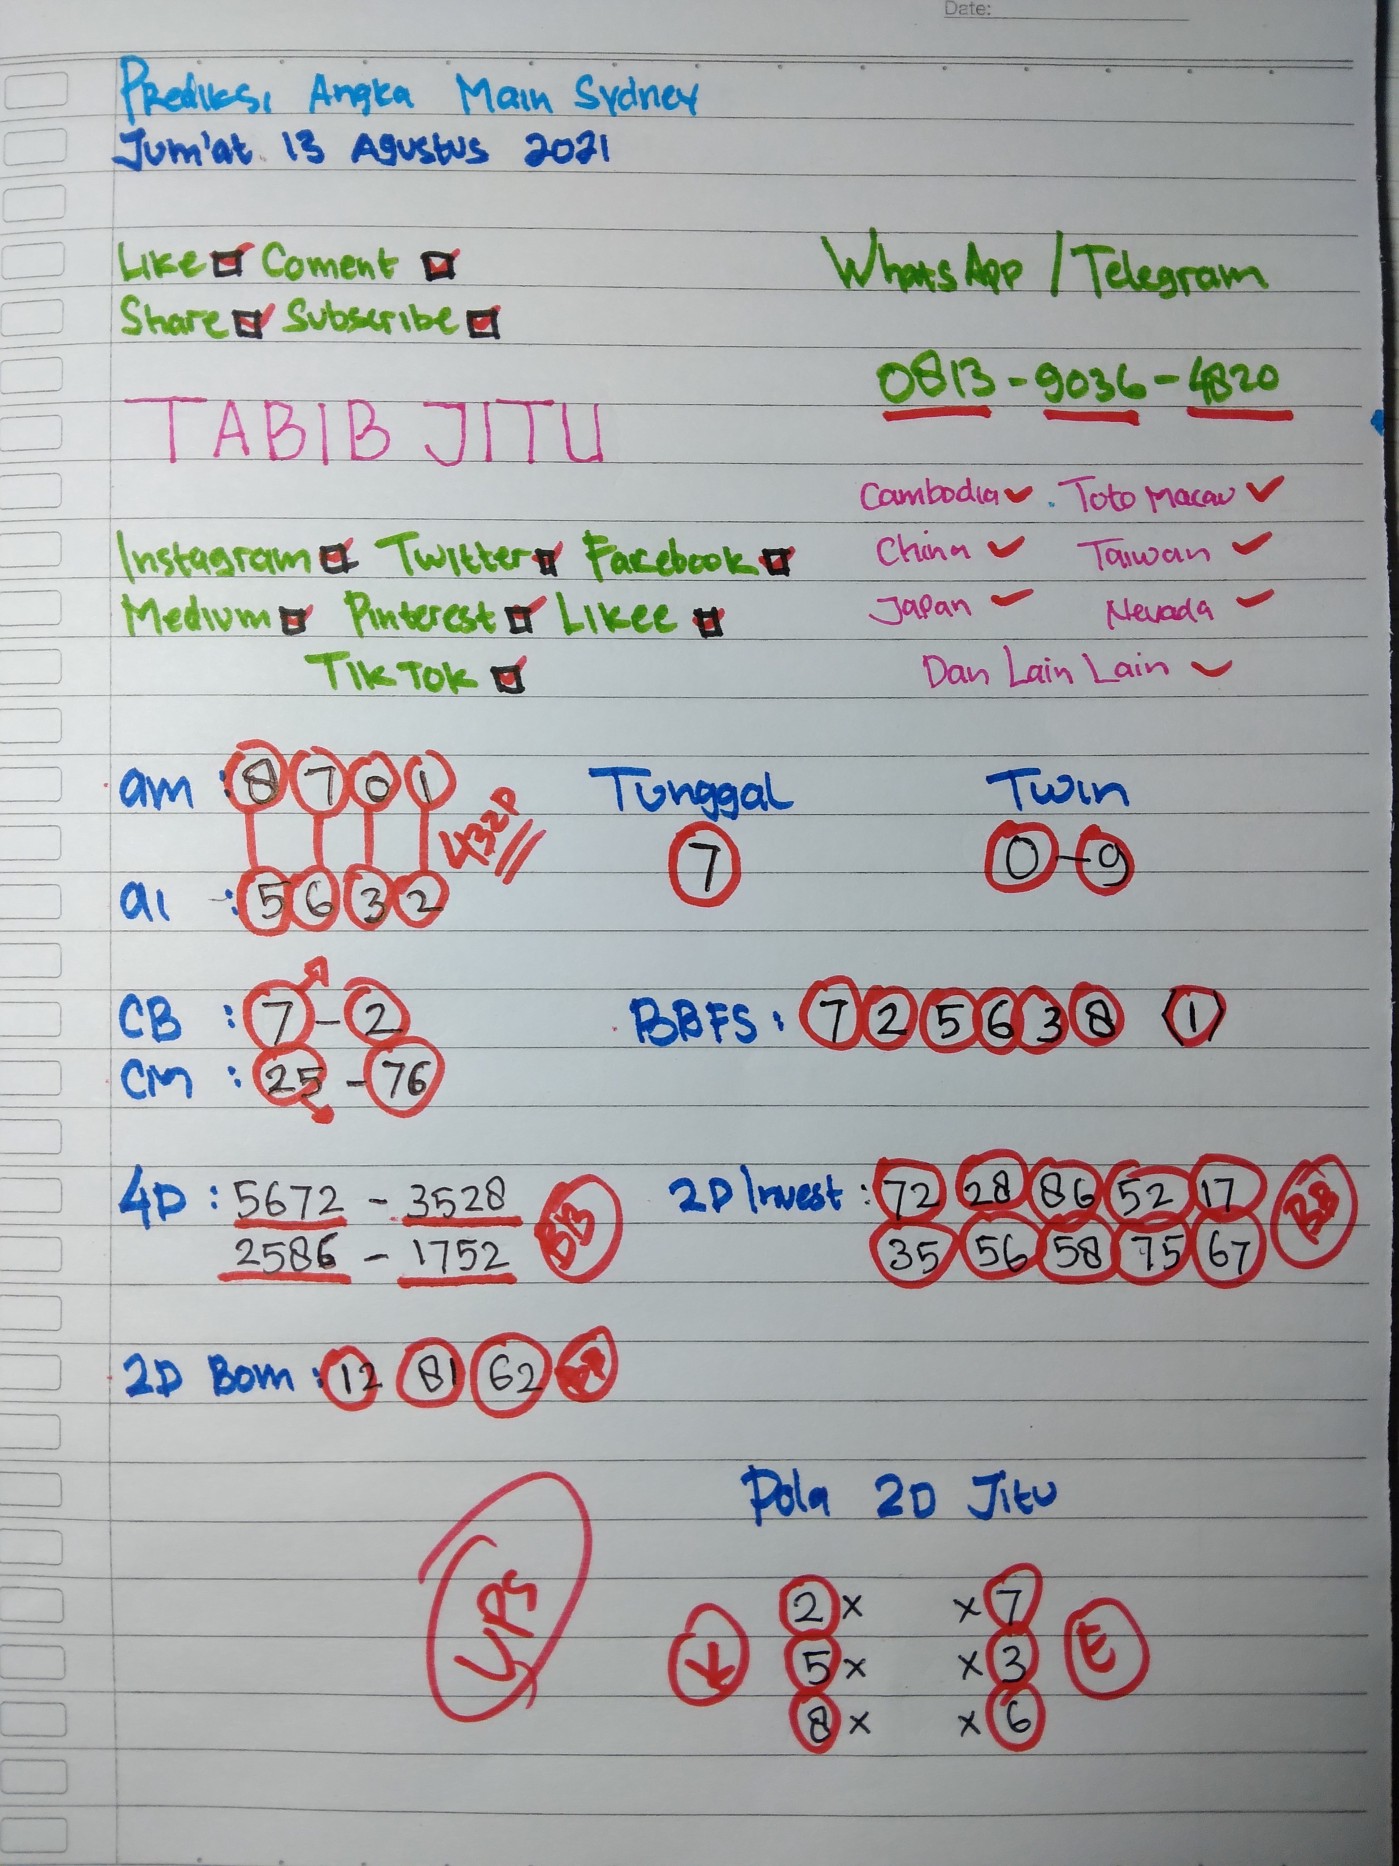 Date:
Prediksi Angka Main Sydney
Jum'at 13 Agustus 2021
Like Coment
Share Subscribe
WhatsApp / Telegram
0813 - 9036 - 4820
TABIB JITU
Cambodia . Toto Macau
China Taiwan
Japan Nevada
Dan Lain Lain
Instagram Twitter Facebook
Medium Pinterest Likee
TikTok
am : 8 7 0 1
432P
ai : 5 6 3 2
Tunggal
7
Twin
0 - 9
CB : 7 - 2
CM : 25 - 76
BBFS : 7 2 5 6 3 8 1
4D : 5672 - 3528
2586 - 1752
BB
2D Invest : 72 28 86 52 17
35 56 58 75 67
BB
2D Bom : 12 81 62
Pola 2D Jitu
2 x x 7
5 x x 3
8 x x 6
E